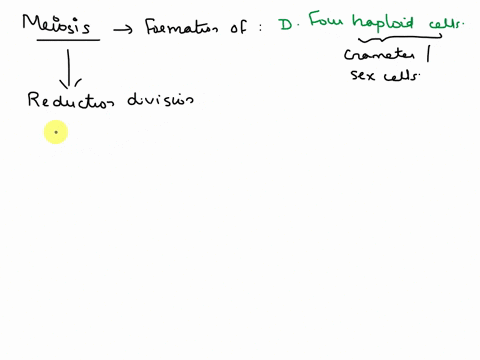 Meiosis → Formation of : D. Four haploid cells.
Gameter /
sex cells.
Reduction division